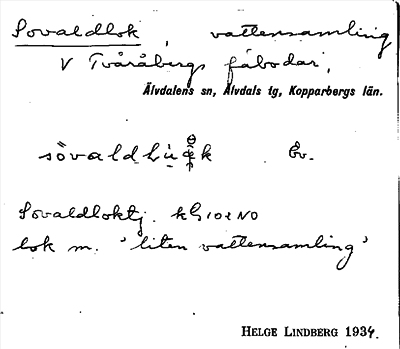 Sovaldlok, vattensamling
V Tvåråbergs fäbodar,
Älvdalens sn, Älvdals tg, Kopparbergs län.
Öv.
Sovaldloktj. kG 10 2 NO
lok m. 'liten vattensamling'
HELGE LINDBERG 1934.